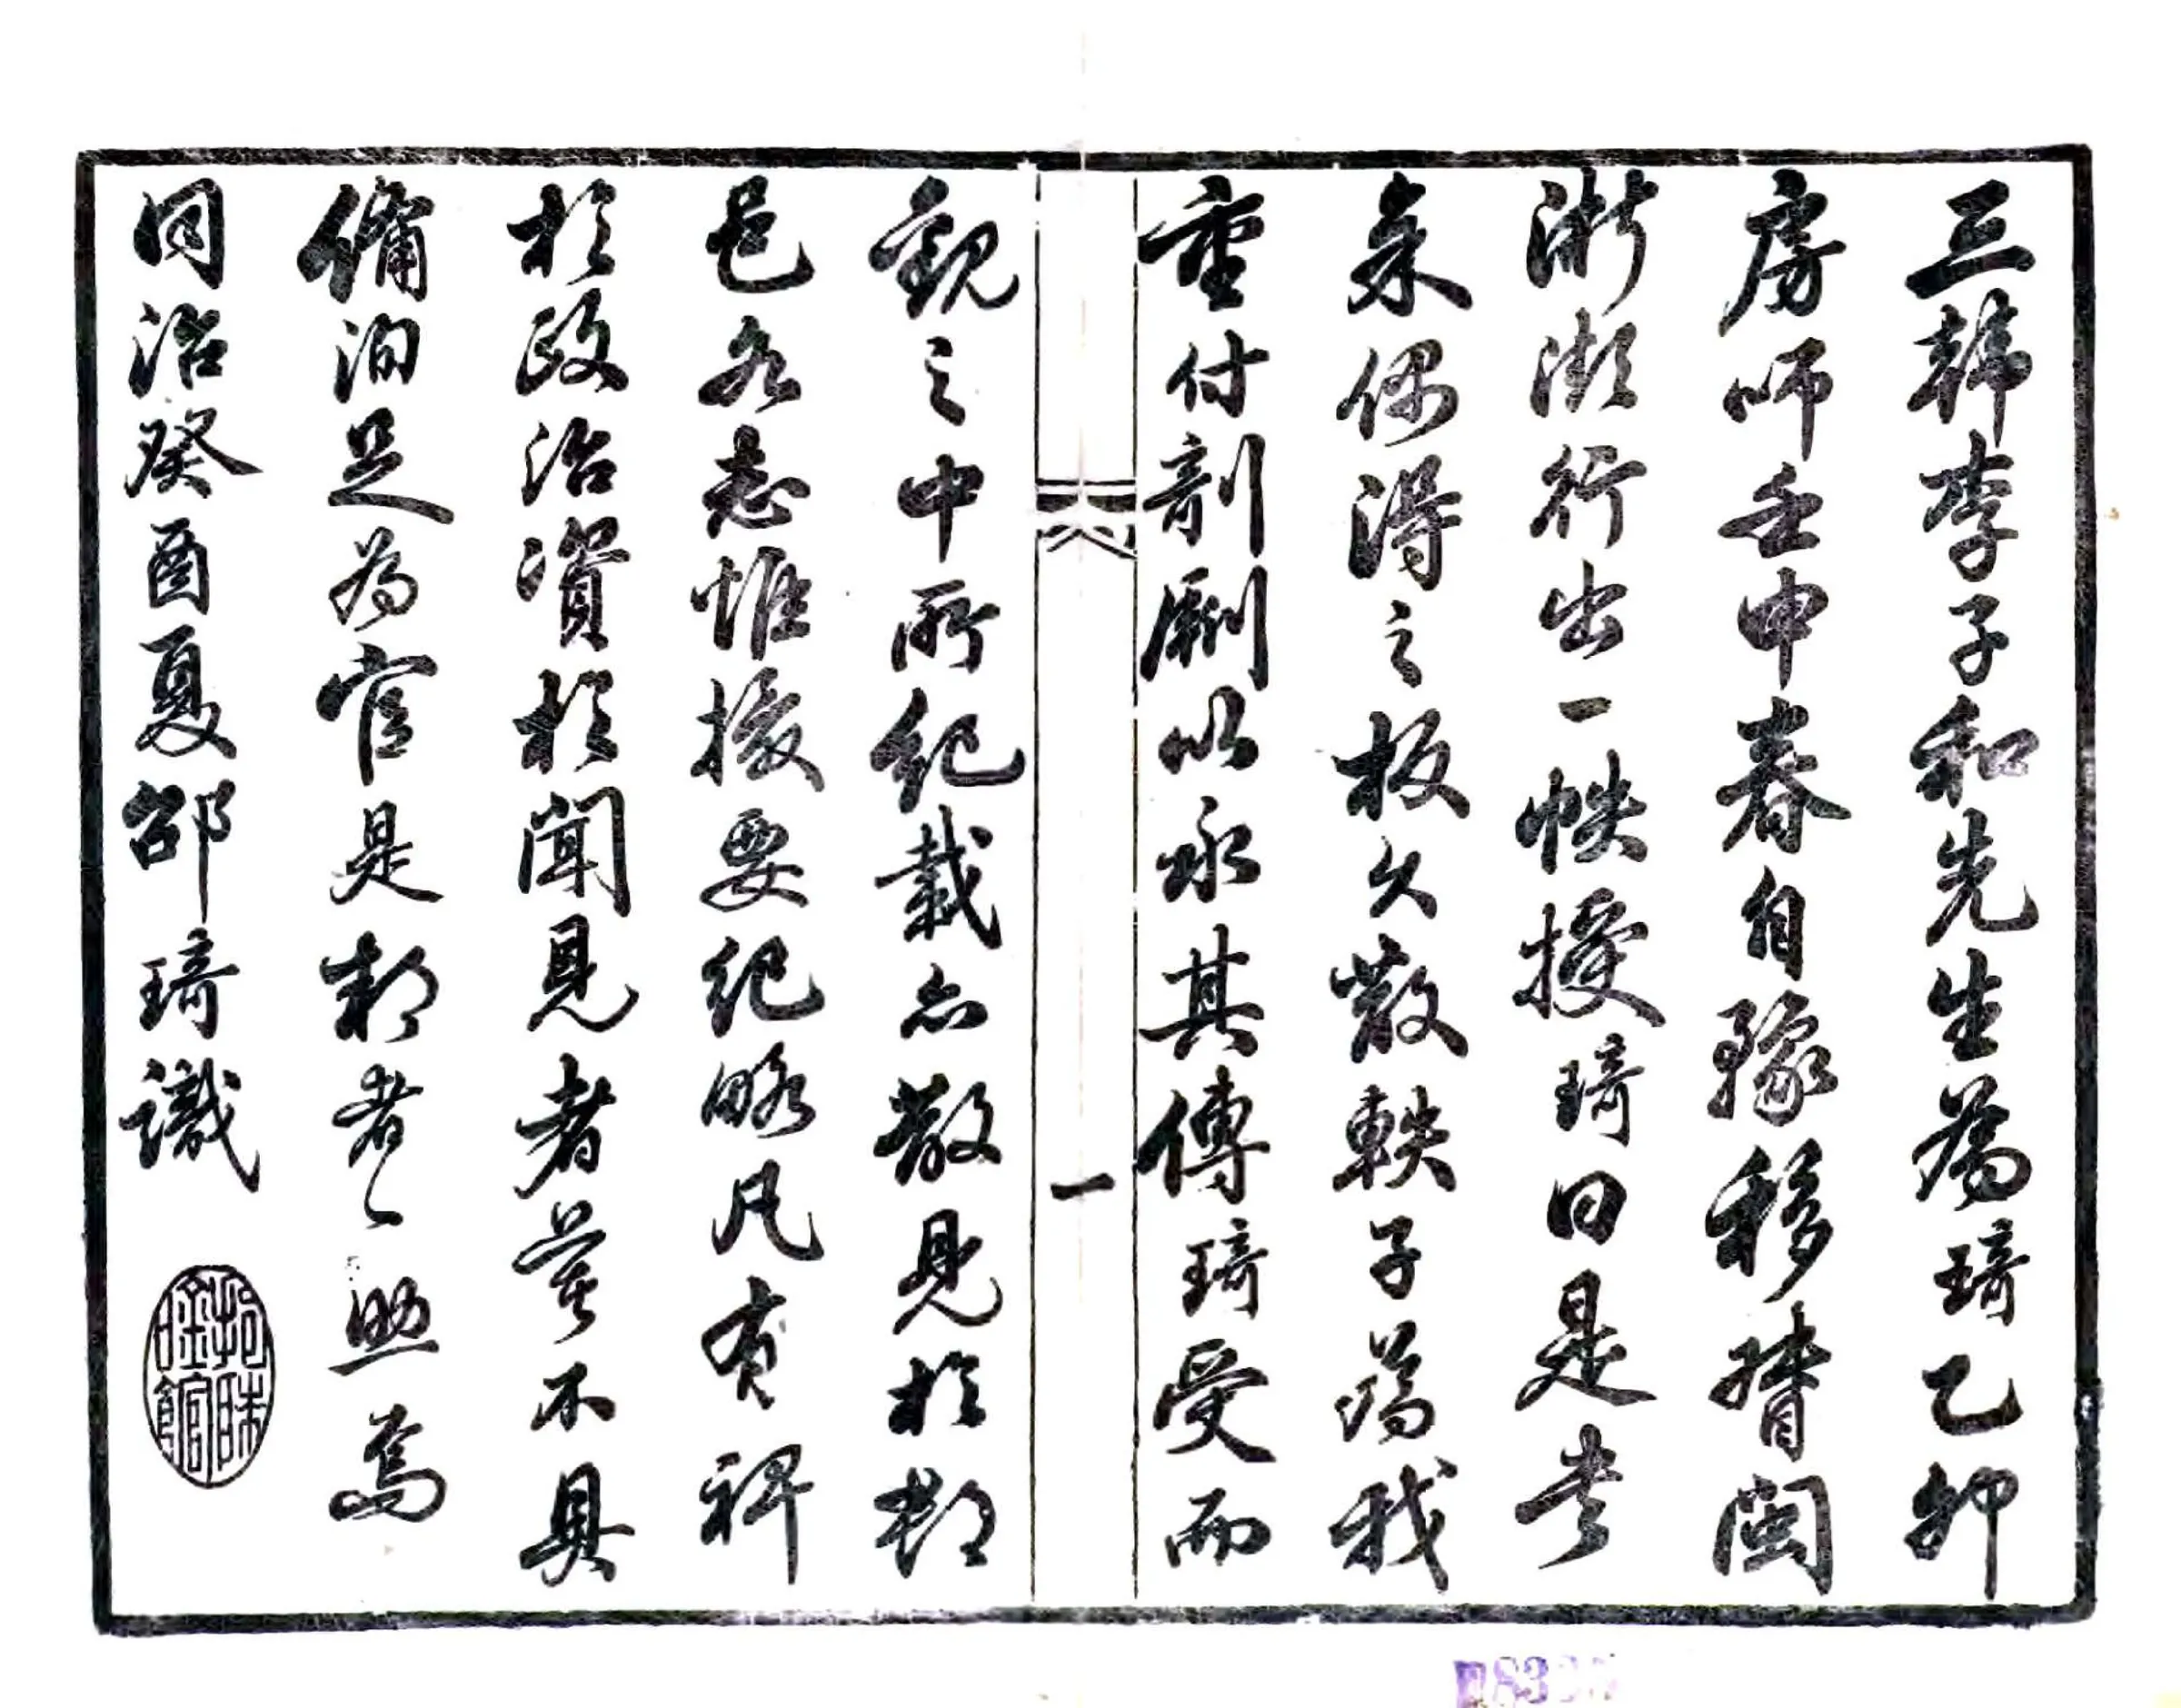 三韓李子和先生為琦乙卯
房師壬申春自豫移督閩
浙瀕行出一帙授琦曰是書
余偶得之板久散軼子為我
重付剞劂以永其傳琦受而
一
觀之中所紀載亦散見於郡
邑各志惟撮要紀略凡有裨
於政治資於聞見者莫不具
備洵足為官是邦者之助焉
同治癸酉夏邵琦識